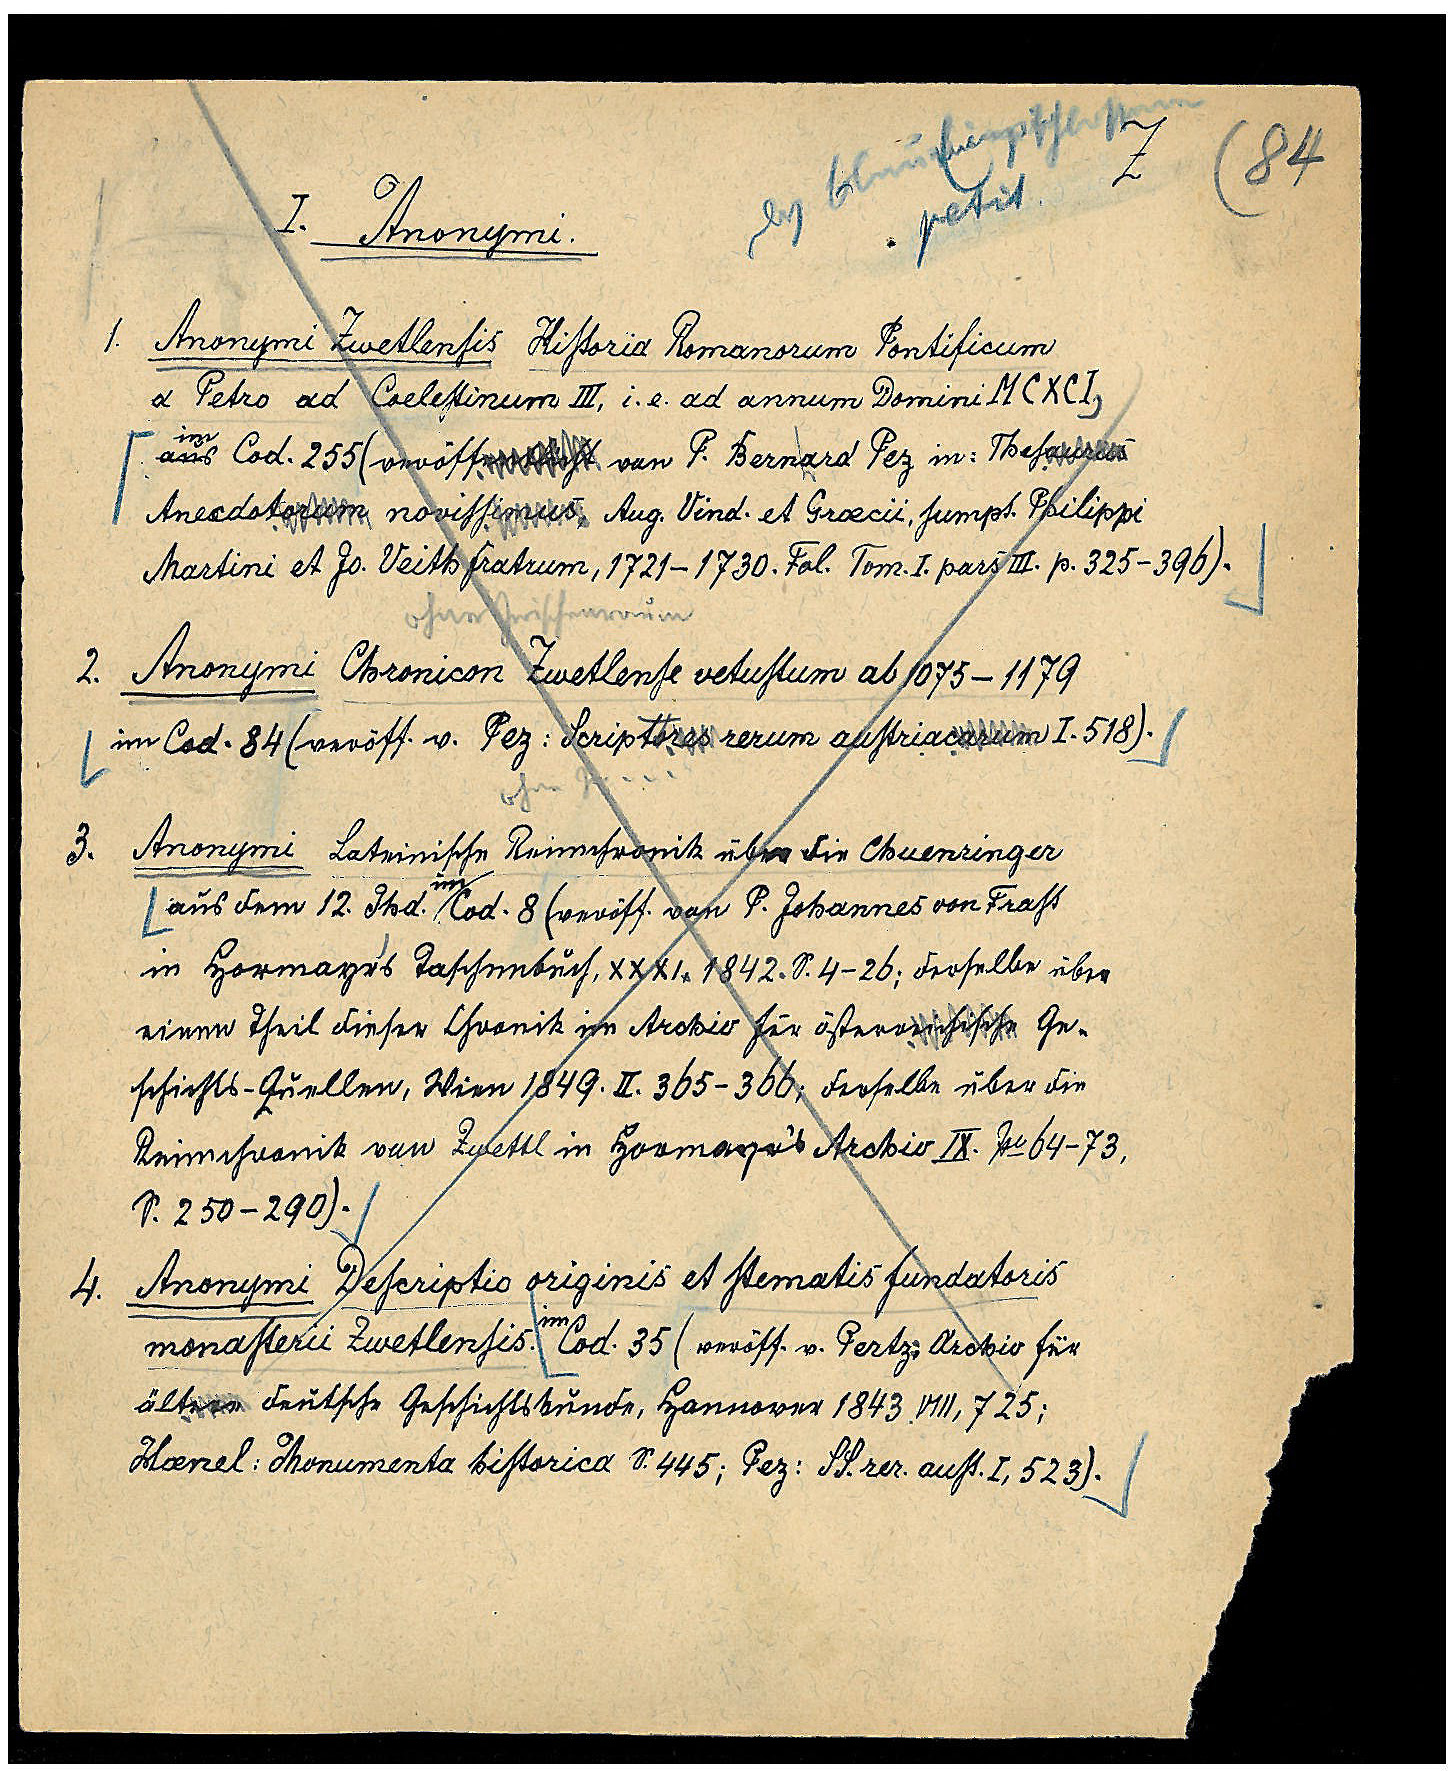 Z (84
[ ] blau eingeschlossen
petit.
I. Anonymi.
1. Anonymi Zwetlensis Historia Romanorum Pontificum
a Petro ad Coelestinum III, i. e. ad annum Domini MCXCI,
im
aus Cod. 255 (veröffentlicht von P. Bernard Pez in: Thesaurus
Anecdotorum novissimus, Aug. Vind. et Græcii, sumpt. Philippi
Martini et Jo. Veith fratrum, 1721–1730. Fol. Tom. I. pars III. p. 325–396).
ohne Zwischenraum
2. Anonymi Chronicon Zwetlense vetustum ab 1075–1179
im Cod. 84 (veröff. v. Pez: Scriptores rerum austriacarum I. 518).
ohne Zw. . . .
3. Anonymi Lateinische Reimchronik über die Chuenringer
im
aus dem 12. Jhd. Cod. 8 (veröff. von P. Johannes von Frast
in Hormayr's Taschenbuch, XXXI. 1842. S. 4–26; derselbe über
einen Theil dieser Chronik im Archiv für österreichische Ge-
schichts-Quellen, Wien 1849. II. 365–366; derselbe über die
Reimchronik von Zwettl in Hormayr's Archiv IX. No 64–73,
S. 250–290).
4. Anonymi Descriptio originis et stematis fundatoris
im
monasterii Zwetlensis. Cod. 35 (veröff. v. Pertz: Archiv für
ältere deutsche Geschichtskunde, Hannover 1843 VIII, 725;
Hænel: Monumenta historica S. 445; Pez: SS. rer. aust. I, 523).